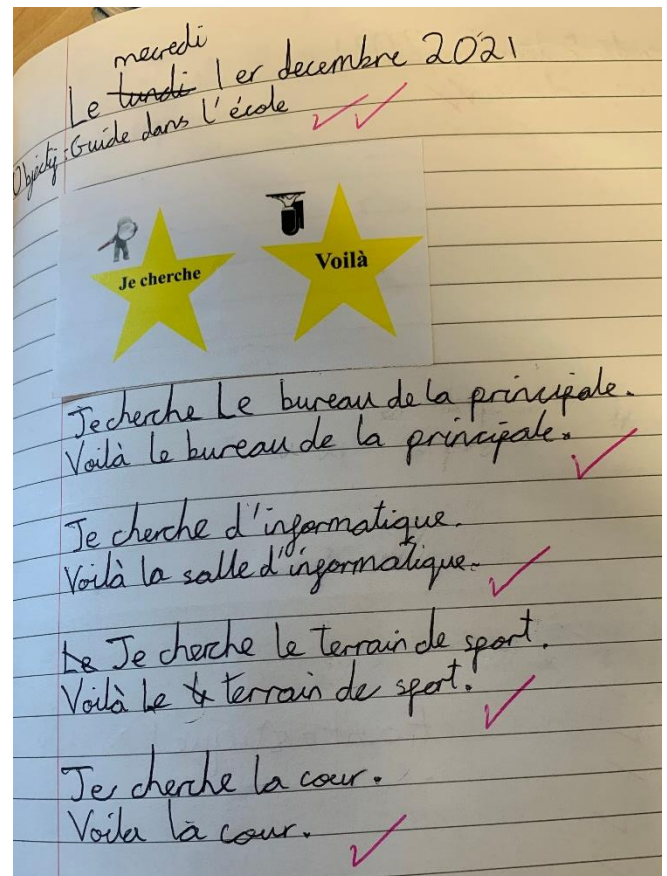 mecredi
Le lundi 1er decembre 2021
Objectif: Guide dans l'école
Je cherche
Voilà
Je cherche Le bureau de la principale.
Voilà le bureau de la principale.
Je cherche d'informatique.
Voilà la salle d'informatique.
Le Je cherche le terrain de sport.
Voilà le terrain de sport.
Je cherche la cour.
Voila là cour.